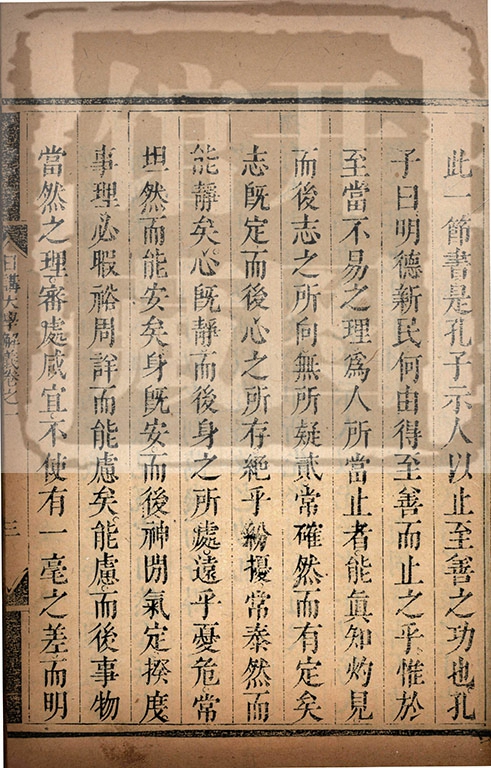 此一節書是孔子示人以止至善之功也孔
子曰明德新民何由得至善而止之乎惟於
至當不易之理爲人所當止者能眞知灼見
而後志之所向無所疑貳常確然而有定矣
志旣定而後心之所存絶乎紛擾常泰然而
能靜矣心旣靜而後身之所處遠乎憂危常
坦然而能安矣身旣安而後神閒氣定揆度
事理必暇裕周詳而能慮矣能慮而後事物
當然之理審處咸宜不使有一毫之差而明
日講大學解義卷之一
三